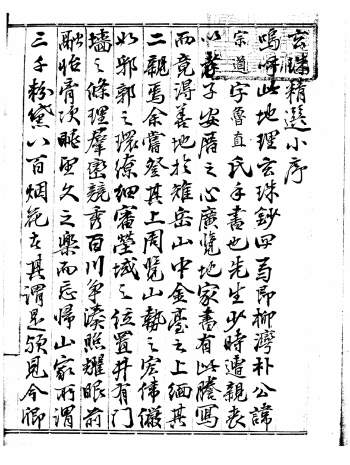 玄珠精選小序
嗚呼此地理玄珠鈔四-即柳灣朴公諱
宗道字魯直氏手書也先生少時遭親喪
以孝子安厝之心廣覽地家書有此謄寫
而竟得善地於雉岳山中金臺之上緬其
二親焉余嘗登其上周覽山埶之宏偉儼
如邪郭之環繚細審塋域之位置井有門
墻之條理羣巒競秀百川爭湊照耀眼前
融怡胷次眺望久之樂而忘歸山家所謂
三千粉黛八百烟花左其謂是穎見今卿